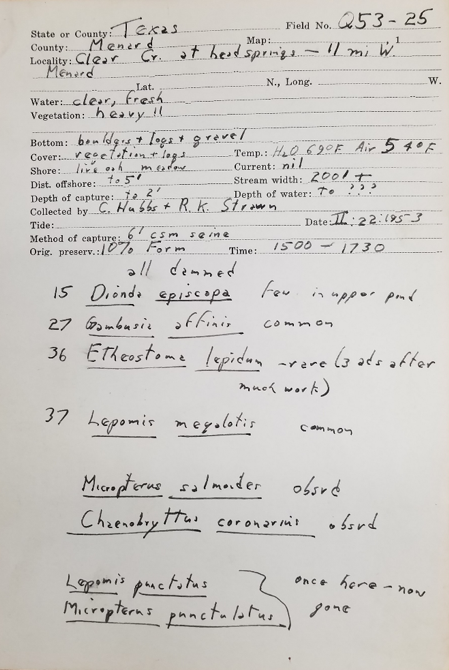 State or County: Texas Field No. Q53-25
County: Menard Map: 1
Locality: Clear Cr. at headsprings — 11 mi W.
Menard
Lat. N., Long. W.
Water: clear, fresh
Vegetation: heavy!!
Bottom: boulders + logs + gravel
Cover: vegetation + logs Temp.: H2O 69°F Air 54°F
Shore: live oak meadow Current: nil
Dist. offshore: to 5' Stream width: 200' +
Depth of capture: to 2' Depth of water: To ???
Collected by C. Hubbs + R. K. Strawn
Tide: Date: II:22:1953
Method of capture: 6' csm seine
Orig. preserv.: 10% Form Time: 1500 — 1730
all dammed
15 Dionda episcopa few in upper pond
27 Gambusia affinis common
36 Etheostoma lepidum -rare (3 ads after
much work)
37 Lepomis megalotis common
Micropterus salmoides obsvd
Chaenobryttus coronarius obsvd
Lepomis punctatus once here - now
Micropterus punctulatus gone